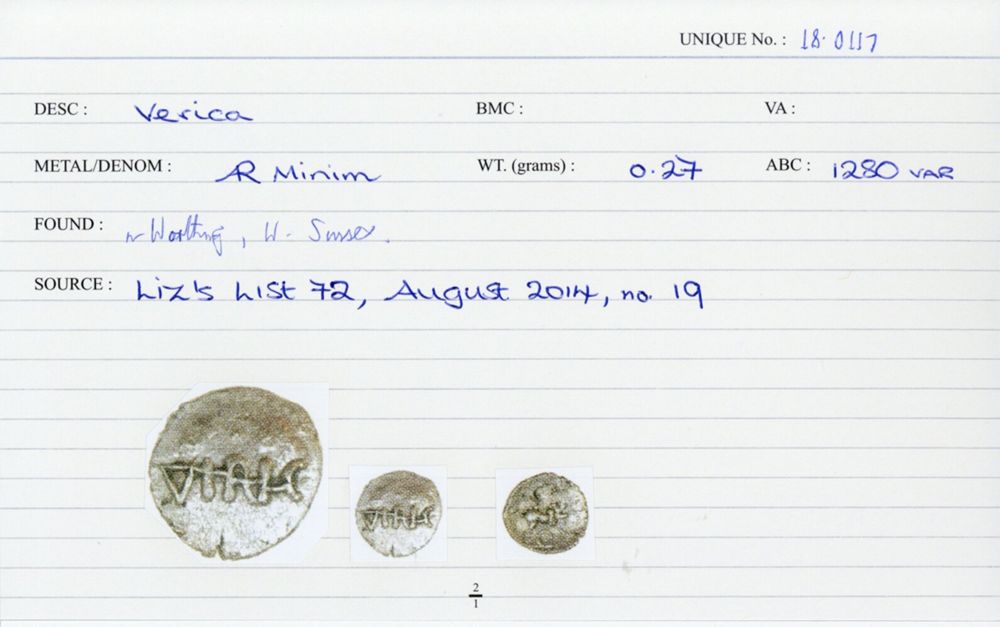 UNIQUE No. : 18.0117
DESC : Verica BMC : VA :
METAL/DENOM : AR Minim WT. (grams) : 0.27 ABC : 1280 VAR
FOUND : nr Worthing, W. Sussex.
SOURCE : Liz's List 72, August 2014, no. 19
2
1